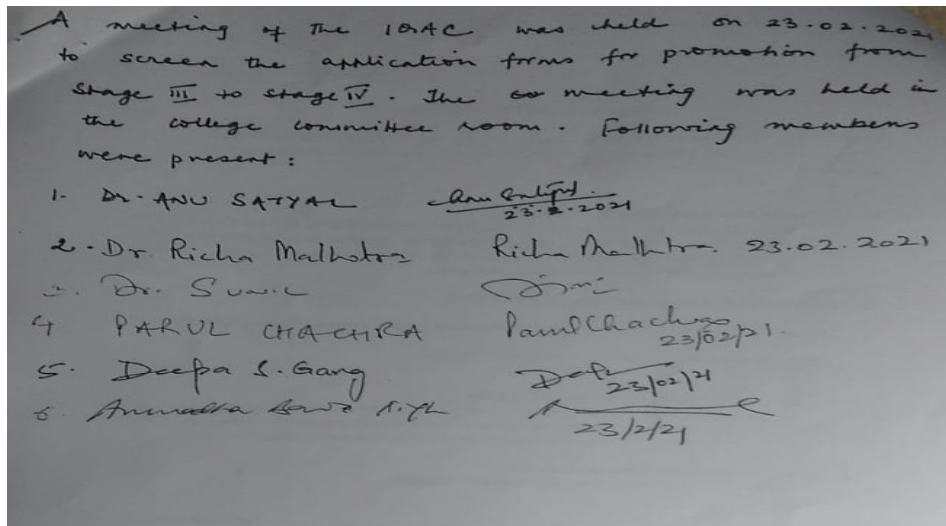 A meeting of the IQAC was held on 23.02.2021
to screen the application forms for promotion from
Stage III to stage IV. The meeting was held in
the college committee room. Following members
were present:
1. Dr. ANU SATYAL 23.2.2021
2. Dr. Richa Malhotra Richa Malhotra 23.02.2021
3. Dr. Sunil
4 PARUL CHACHRA Parul Chachra 23/02/21.
5. Deepa S. Garg 23/02/21
6. Anuradha 23/2/21